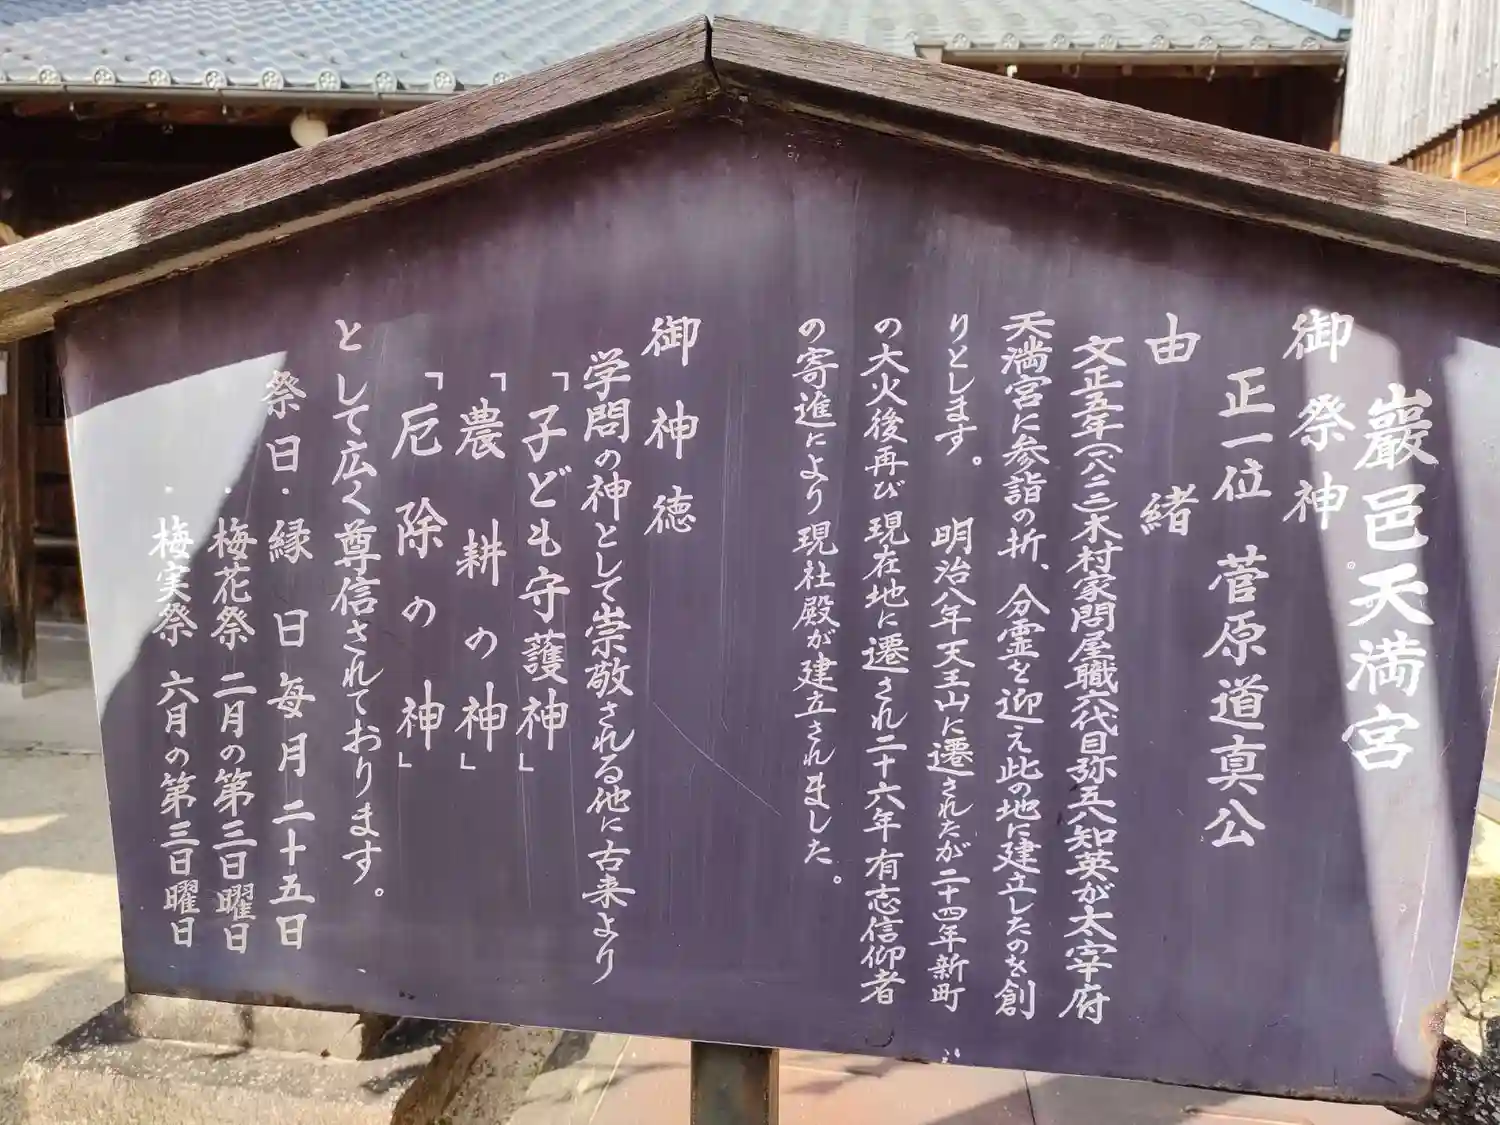 巖邑天満宮
御祭神
正一位 菅原道真公
由緒
文正五年(一八二二)木村家問屋職六代目弥五八知英が太宰府
天満宮に参詣の折、分霊を迎え此の地に建立したのを創
りとします。 明治八年天王山に遷されたが二十四年新町
の大火後再び現在地に遷され二十六年有志信仰者
の寄進により現社殿が建立されました。
御神徳
学問の神として崇敬される他に古来より
「子ども守護神」
「農耕の神」
「厄除の神」
として広く尊信されております。
祭日・縁日 毎月二十五日
・梅花祭 二月の第三日曜日
・梅実祭 六月の第三日曜日